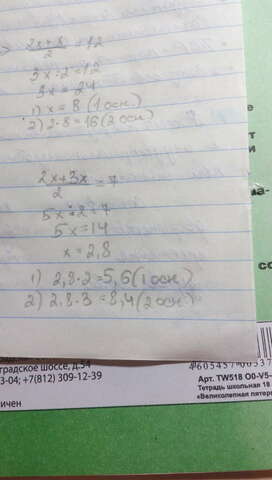 2x+x/2 = 12
3x:2=12
3x=24
1) x=8 (1 осн.)
2) 2·8=16 (2 осн.)
2x+3x/2 = 7
5x:2=7
5x=14
x=2,8
1) 2,8·2=5,6 (1 осн.)
2) 2,8·3=8,4 (2 осн.)
шоссе, д.54
3-04; +7(812) 309-12-39
Арт. TW518
Тетрадь школьная 18
«Великолепная